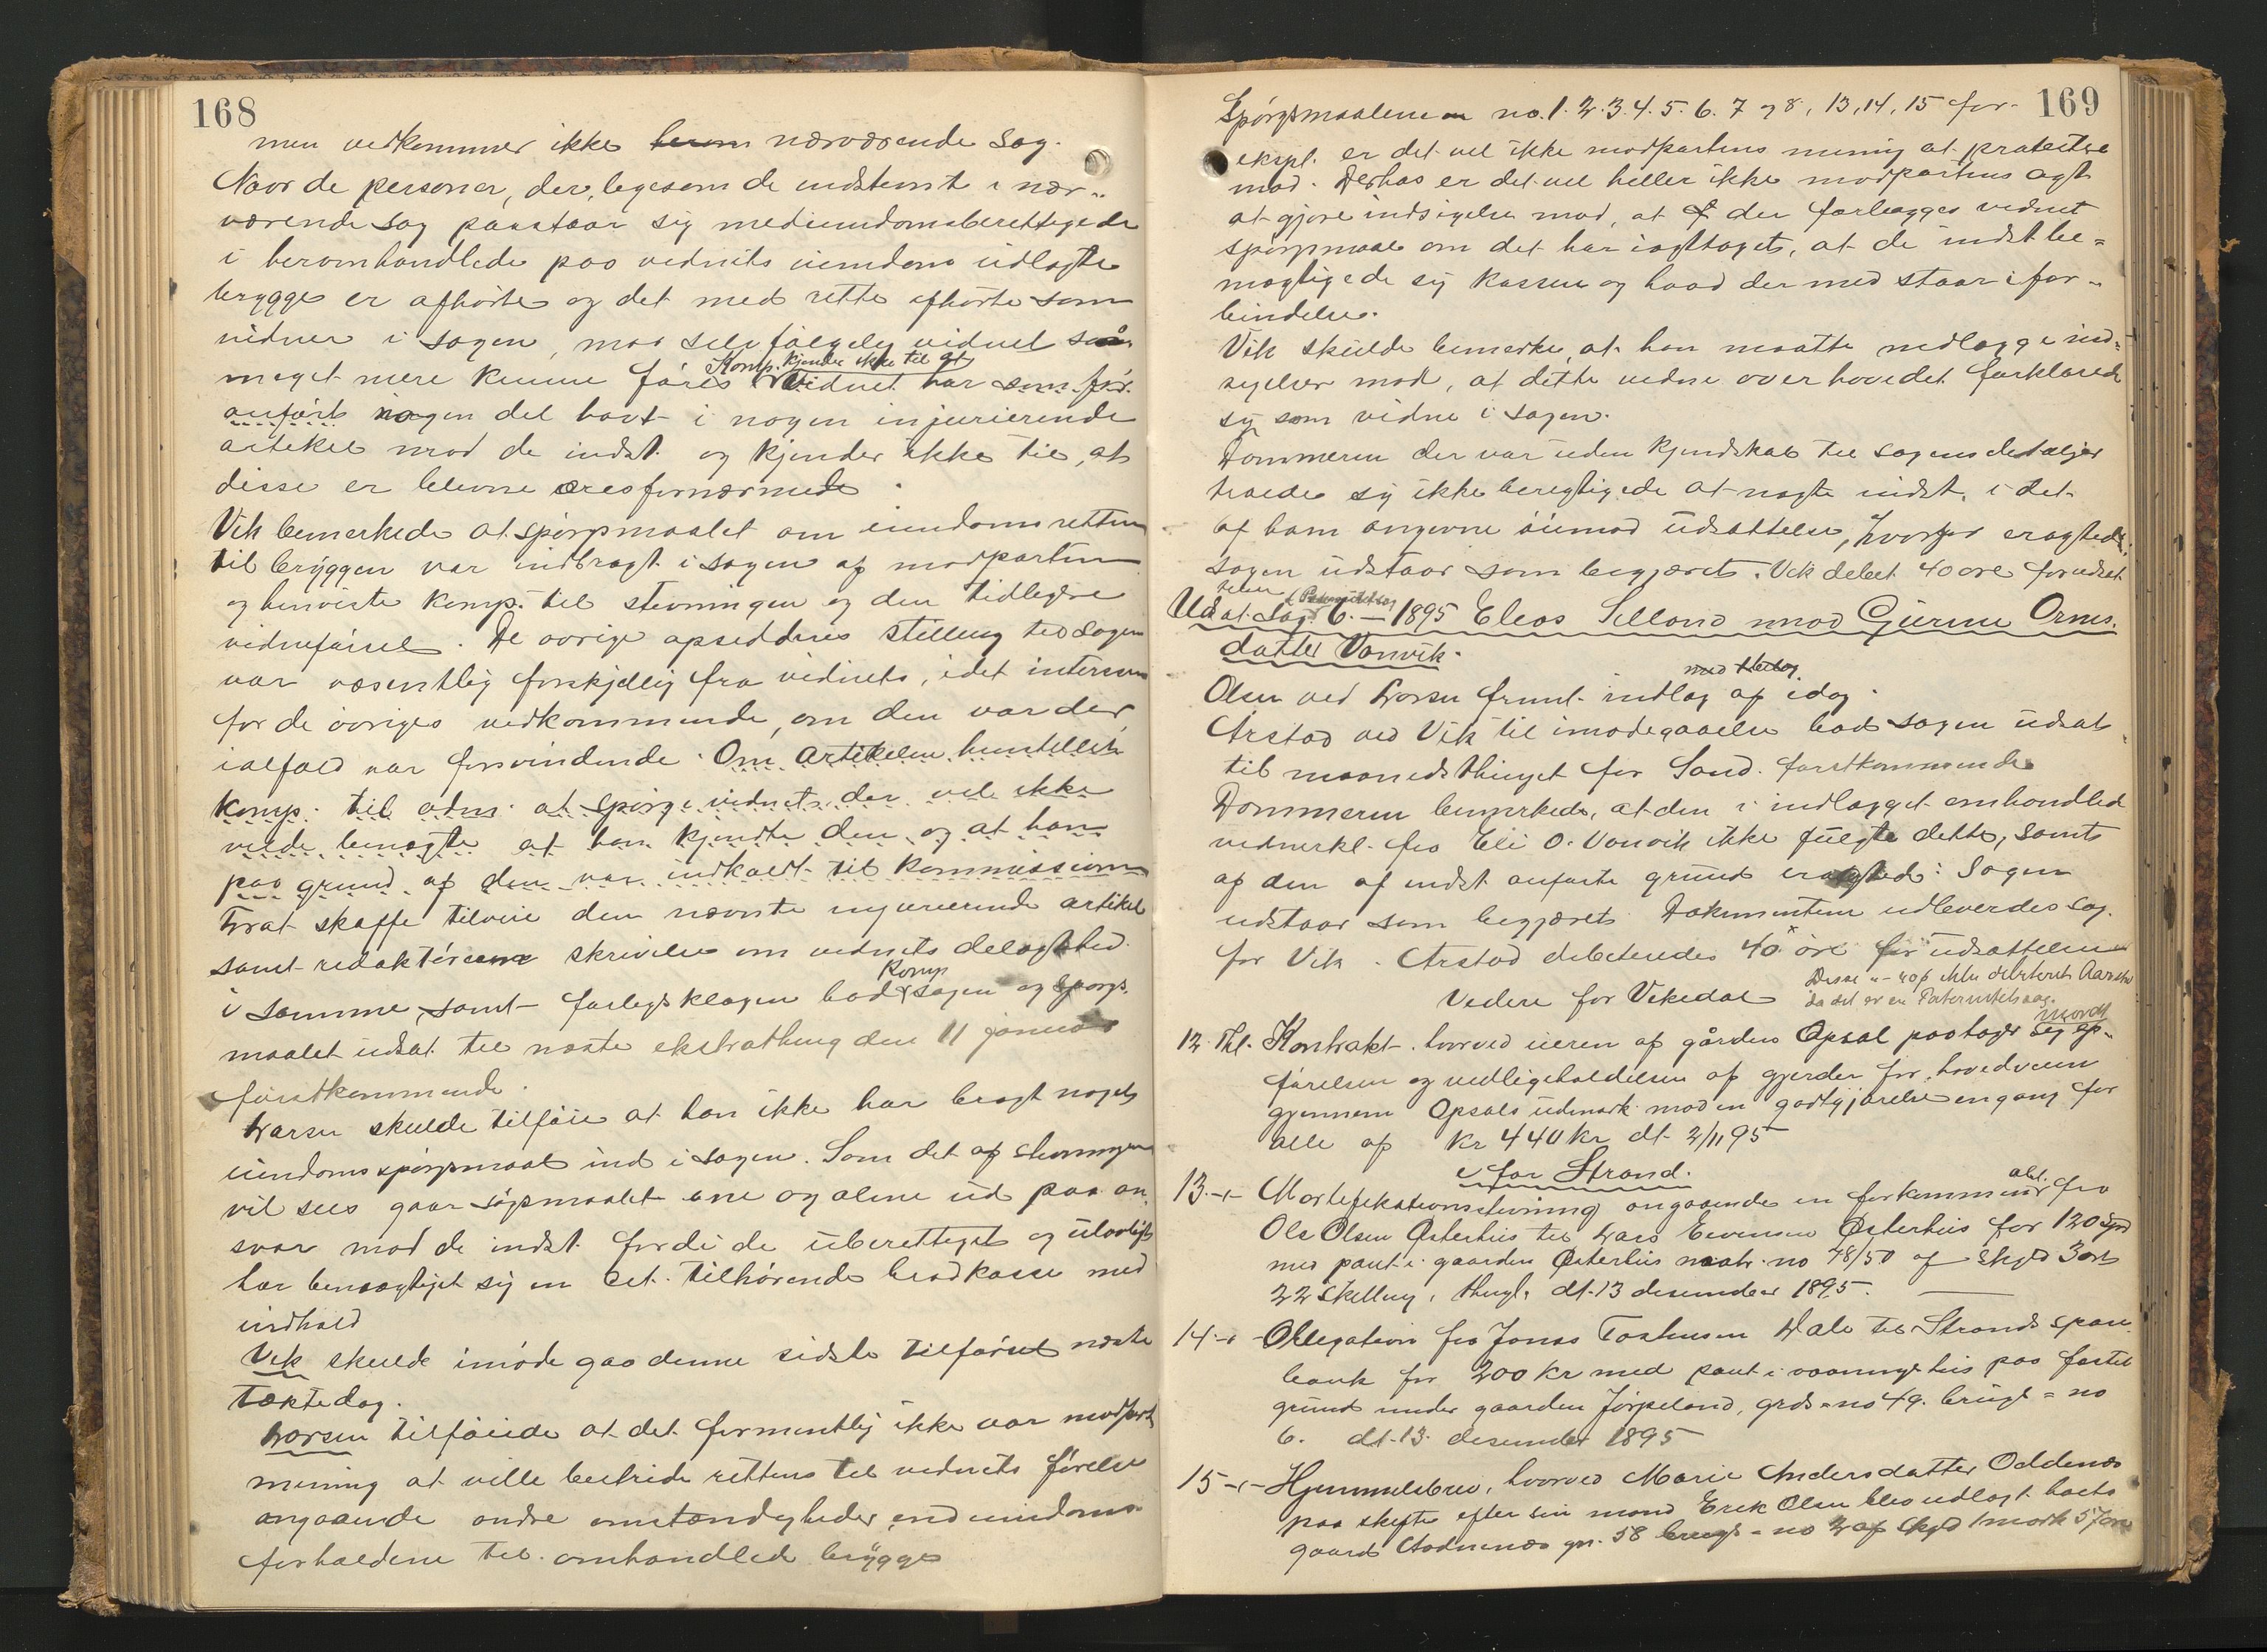 168
men vedkommer ikke nærværende sag.
Naar de personer, der, ligesom de indstevnte i nær-
værende sag paastaar sig medeiendomsberettigede
i heromhandlede paa vidnets eiendom udlagte
brygge er afhørte og det med rette afhørte som
vidner i sagen, maa selvfølgelig vidnet saa
Komp. kjender ikke til at
meget mere kunne føres. Vidnet har som før
anført nogen del havt i nogen injurierende
artikel mod de indst. og kjender ikke til, at
disse er blevne æresfornærmede.
Vik bemerkede at spørgsmaalet om eiendomsretten
til bryggen var indbragt i sagen af modparten
og henviste komp. til stevningen og den tidligere
vidneførsel. De øvrige opsidderes stilling til sagen
var væsentlig forskjellig fra vidnets, idet interessen
for de øvriges vedkommende, om den var der
ialfald var forsvindende. Om artikelen henstillet
komp. til adm. at spørge vidnet der vel ikke
vilde benegte at han kjendte den og at han
paa grund af den var indkaldt til kommission
For at skaffe tilveie den nævnte injurierende artikel
samt redaktørens skrivelse om vidnets delagtighed
Komp
i samme, samt forligsklagen bad sagen og spørgs-
maalet udsat til næste ekstrathing den 11 januar
førstkommende.
Larsen skulde tilføie at han ikke har bragt noget
eiendomsspørgsmaal ind i sagen. Som det af stevningen
vil sees gaar søgsmaalet ene og alene ud paa an-
svar mod de indst. fordi de uberettiget og ulovligt
har bemægtiget sig en Cit. tilhørende brødkasse med
indhold
Vik skulde imøde gaa denne sidste tilførsel næste
tægtedag.
Larsen tilføiede at det formentlig ikke var modparts
mening at ville bestride retten til vidnets førelse
angaaende andre omstændigheder end eiendoms-
forholdene til omhandlede brygge
169
Spørgsmaalene no. 1. 2. 3. 4. 5. 6. 7 og 8, 13, 14, 15 for
ekspl. er det vel ikke modpartens mening at protestere
mod. Derhos er det vel heller ikke modpartens agt
at gjøre indsigelse mod, at der forlægges vidnet
spørgsmaal om det har iagttaget, at de indst be-
mægtigede sig kassen og hvad dermed staar i for-
bindelse.
Vik skulde bemerke, at han maatte nedlægge ind-
sigelse mod, at dette vidne overhovedet forklarede
sig som vidne i sagen.
Dommeren der var uden kjendskab til sagens detaljer
troede sig ikke beregtigede at nægte indst. i det
af ham angivne øiemed udsættelse, hvorfor eragtedes:
sagen udstaar som begjæret. Vik debet 40 øre for udsæt-
telsen
Udsat. Sag 6. – 1895 Eleas Selland mod Gurine Orms-
datter Vanvik.
Olsen ved Larsen fremt. indlæg af idag.
Arstad ved Vik til imødegaaelse bad sagen udsat
til maanedsthinget for Sand førstkommende
Dommeren bemerkede, at den i indlægget omhandlede
vidnerkl. fra Eli O. Vanvik ikke fulgte dette, samt
af den af indst anførte grund eragtedes: Sagen
udstaar som begjæret. Dokumenterne udleverdes sag-
før Vik. Arstad debiteredes 40 øre for udsættelsen
Disse 40 ø ikke debiteret Aarstad
da det er en Paternitetssag.
Videre for Vikedal
12. Thl. Kontrakt hvorved eieren af gården Opsal paatager sig op-
førelsen og vedligeholdelsen af gjerder for hovedveien
gjennem Opsals udmark mod en godtgjørelse en gang for
alle af Kr 440 kr dt. 2/11 95
for Strand.
13. -"- Mortifikationsstevning angaaende en forkommen obl. fra
Ole Olsen Østerhus til Lars Evensen Østerhus for 120 spd
med pant i gaarden Østerhus matr. no 48/50 af skyld 3 ort
22 skilling, thingl. dt. 13 desember 1895.
14. -"- Obligation fra Jonas Tostensen Dale til Strands spare-
bank for 200 kr med pant i vaaningshus paa fæstet
grund under gaarden Jørpeland, grds-no 49. brugs-no
6. dt. 13. desember 1895
15 -"- Hjemmelsbrev, hvorved Marie Andersdatter Oddenæs
paa skifte efter sin mand Erik Olsen blev udlagt boets
gaard gn. 58 brugs-no 2 af skyld 1 mark 57 øre